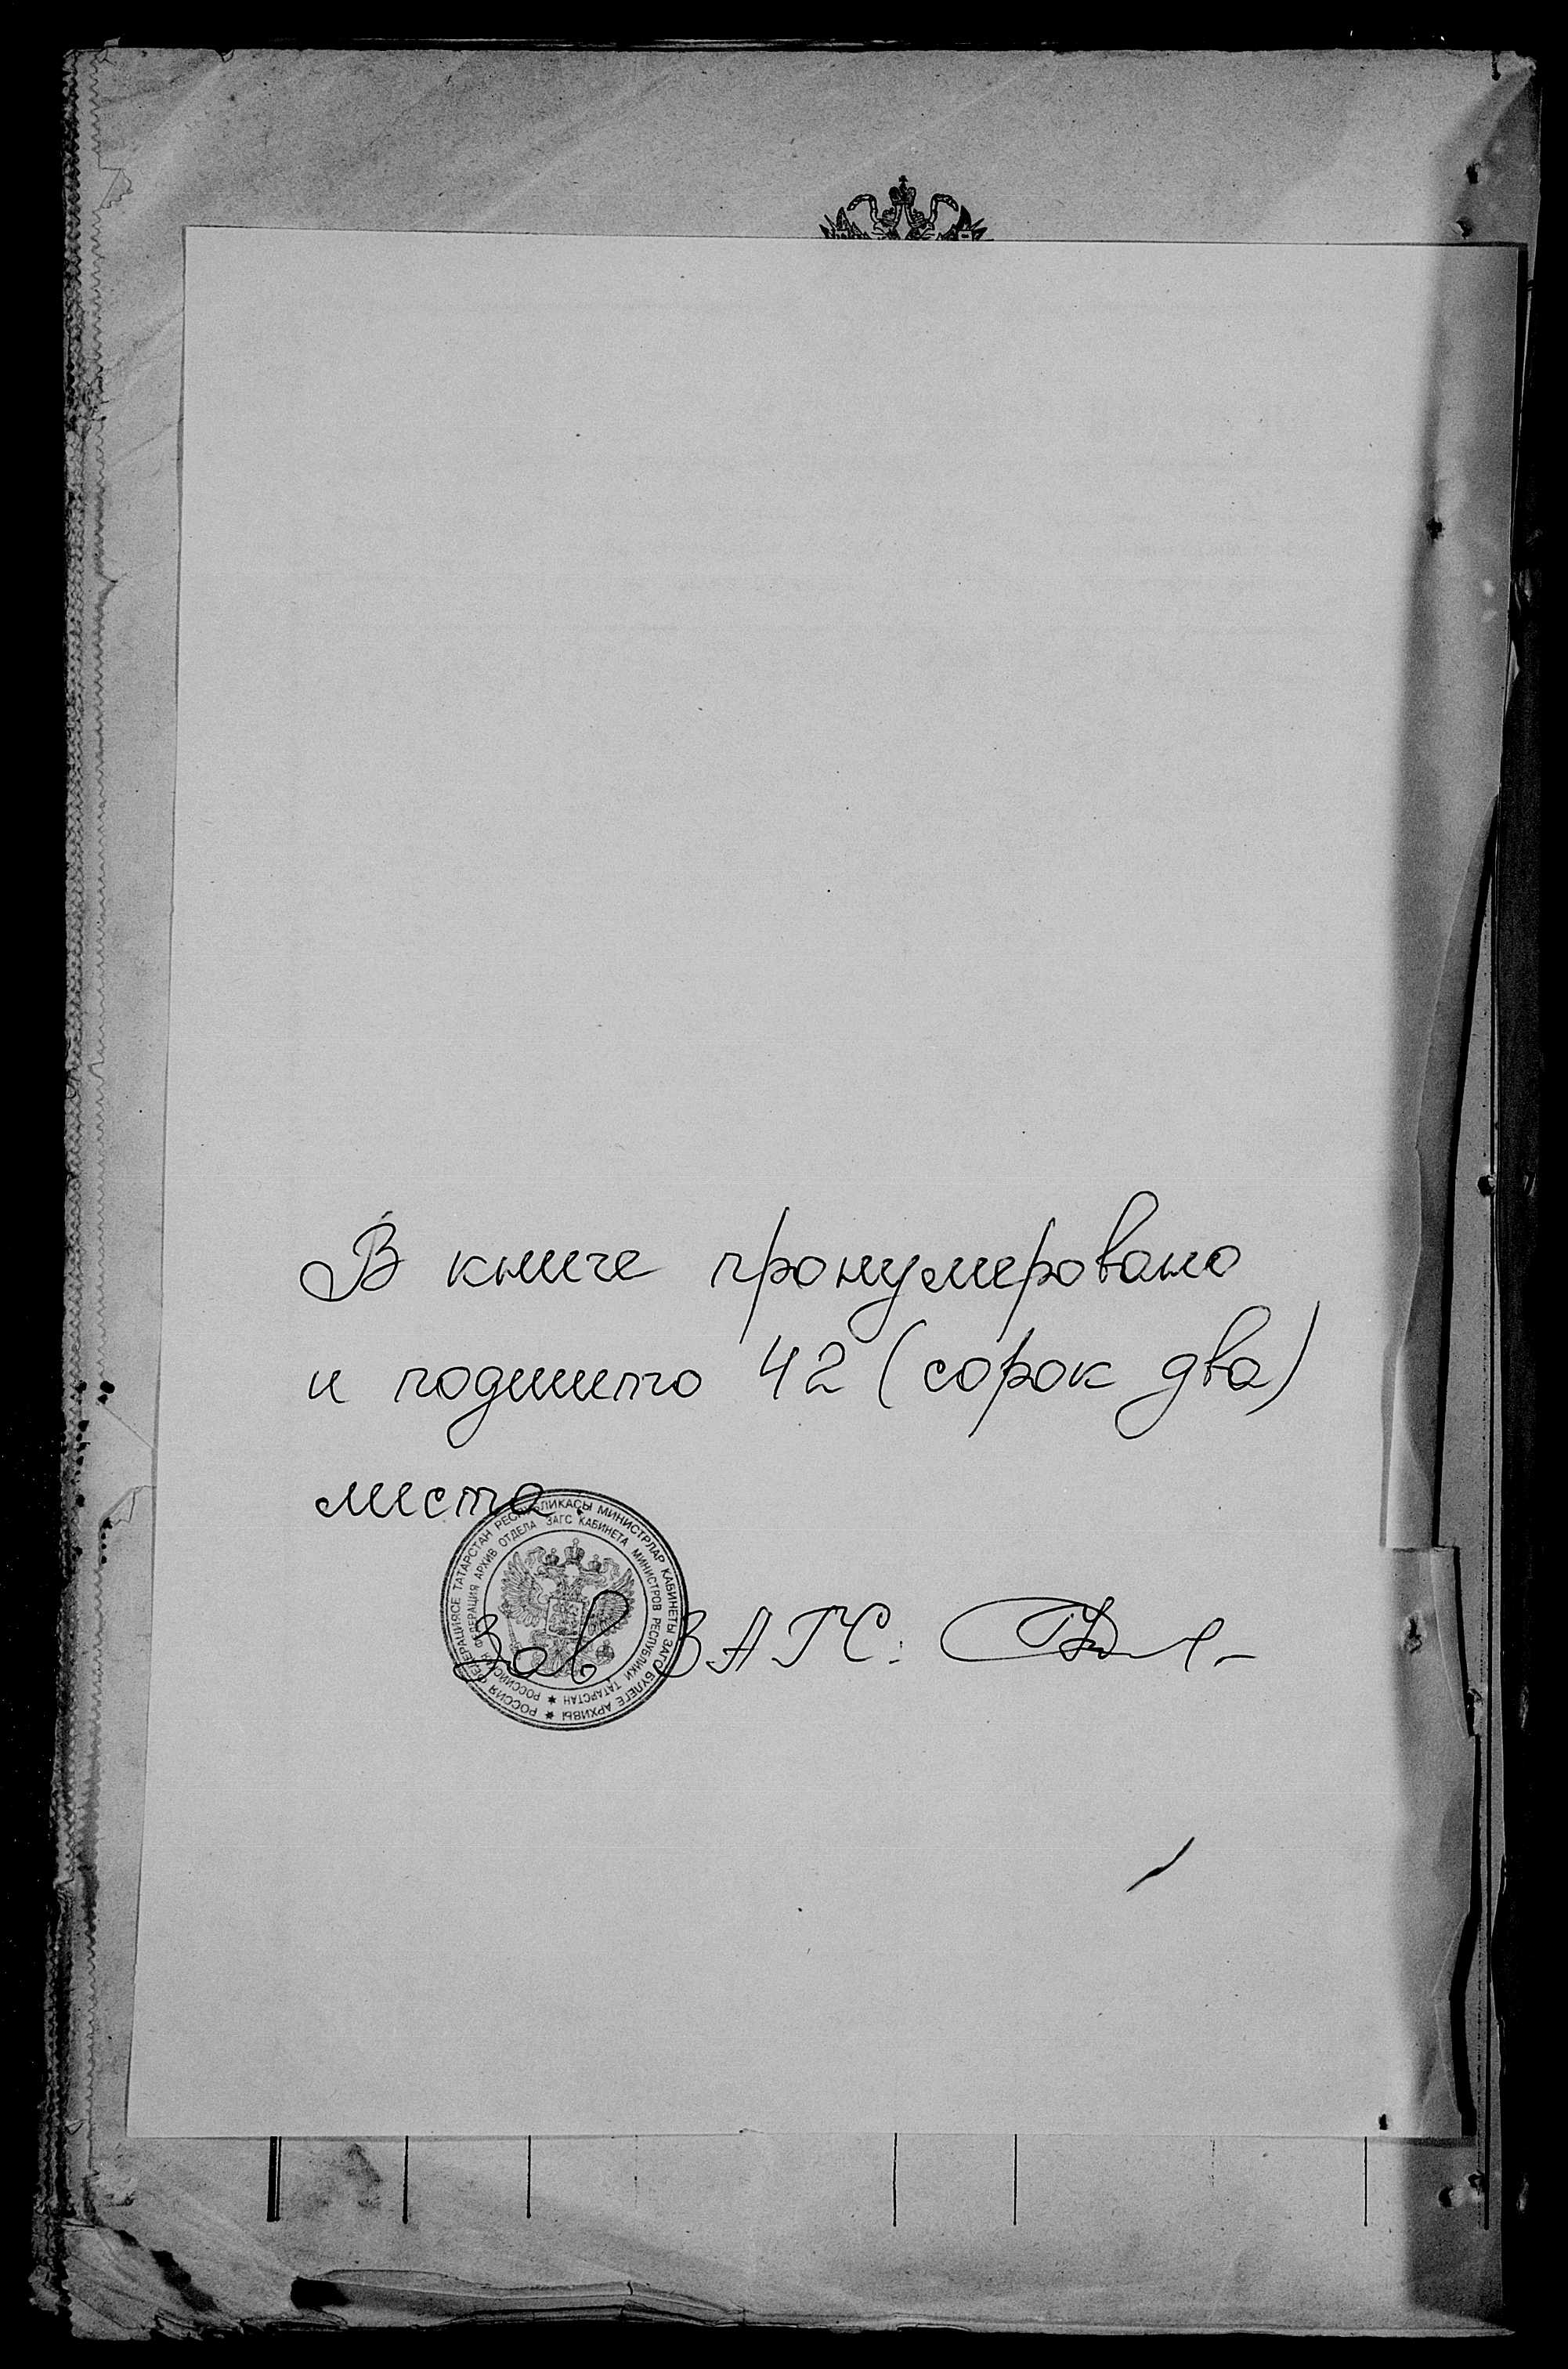 В книге пронумеровано
и подшито 42 (сорок два)
листа.
РОССИЯ ФЕДЕРАЦИЯСЕ ТАТАРСТАН РЕСПУБЛИКАСЫ МИНИСТРЛАР КАБИНЕТЫ ЗАГС БҮЛЕГЕ АРХИВЫ
РОССИЙСКАЯ ФЕДЕРАЦИЯ АРХИВ ОТДЕЛА ЗАГС КАБИНЕТА МИНИСТРОВ РЕСПУБЛИКИ ТАТАРСТАН
Зав. ЗАГС: